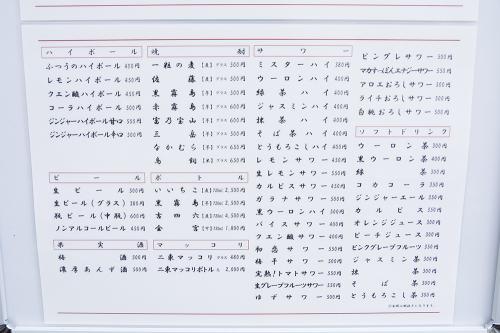 ハイボール
ふつうのハイボール 400円
レモンハイボール 450円
クエン酸ハイボール 450円
コーラハイボール 500円
ジンジャーハイボール甘口 500円
ジンジャーハイボール辛口 500円
ビール
生ビール 500円
生ビール(グラス) 380円
瓶ビール(中瓶) 600円
ノンアルコールビール 450円
果実酒
梅酒 500円
濃厚あんず酒 500円
焼酎
一粒の麦[麦]グラス 500円
佐藤[麦]グラス 500円
黒霧島[芋]グラス 500円
赤霧島[芋]グラス 500円
富乃宝山[芋]グラス 600円
三岳[芋]グラス 500円
なかむら[芋]グラス 650円
鳥飼[米]グラス 650円
ボトル
いいちこ[麦]720ml 2,500円
黒霧島[芋]720ml 2,500円
吉四六[麦]720ml 4,500円
金宮[甘]720ml 1,890円
マッコリ
二東マッコリ グラス 480円
二東マッコリボトル 2,000円
サワー
ミスターハイ 380円
ウーロンハイ 400円
緑茶ハイ 400円
ジャスミンハイ 400円
抹茶ハイ 400円
そば茶ハイ 400円
とうもろこしハイ 400円
レモンサワー 450円
生レモンサワー 550円
カルピスサワー 450円
ガラナサワー 500円
黒ウーロンハイ 500円
バイスサワー 400円
クエン酸サワー 400円
和恋サワー 550円
梅干サワー 500円
完熟!トマトサワー 550円
生グレープフルーツサワー 550円
ゆずサワー 500円
ピングレサワー 500円
アロエおろしサワー 500円
ライチおろしサワー 500円
白桃おろしサワー 500円
ソフトドリンク
ウーロン茶 300円
黒ウーロン茶 400円
緑茶 300円
コカコーラ 350円
ジンジャーエール 350円
カルピス 350円
オレンジジュース 300円
ピーチジュース 300円
ピンクグレープフルーツ 350円
ジャスミン茶 300円
抹茶 300円
そば茶 300円
とうもろこし茶 300円